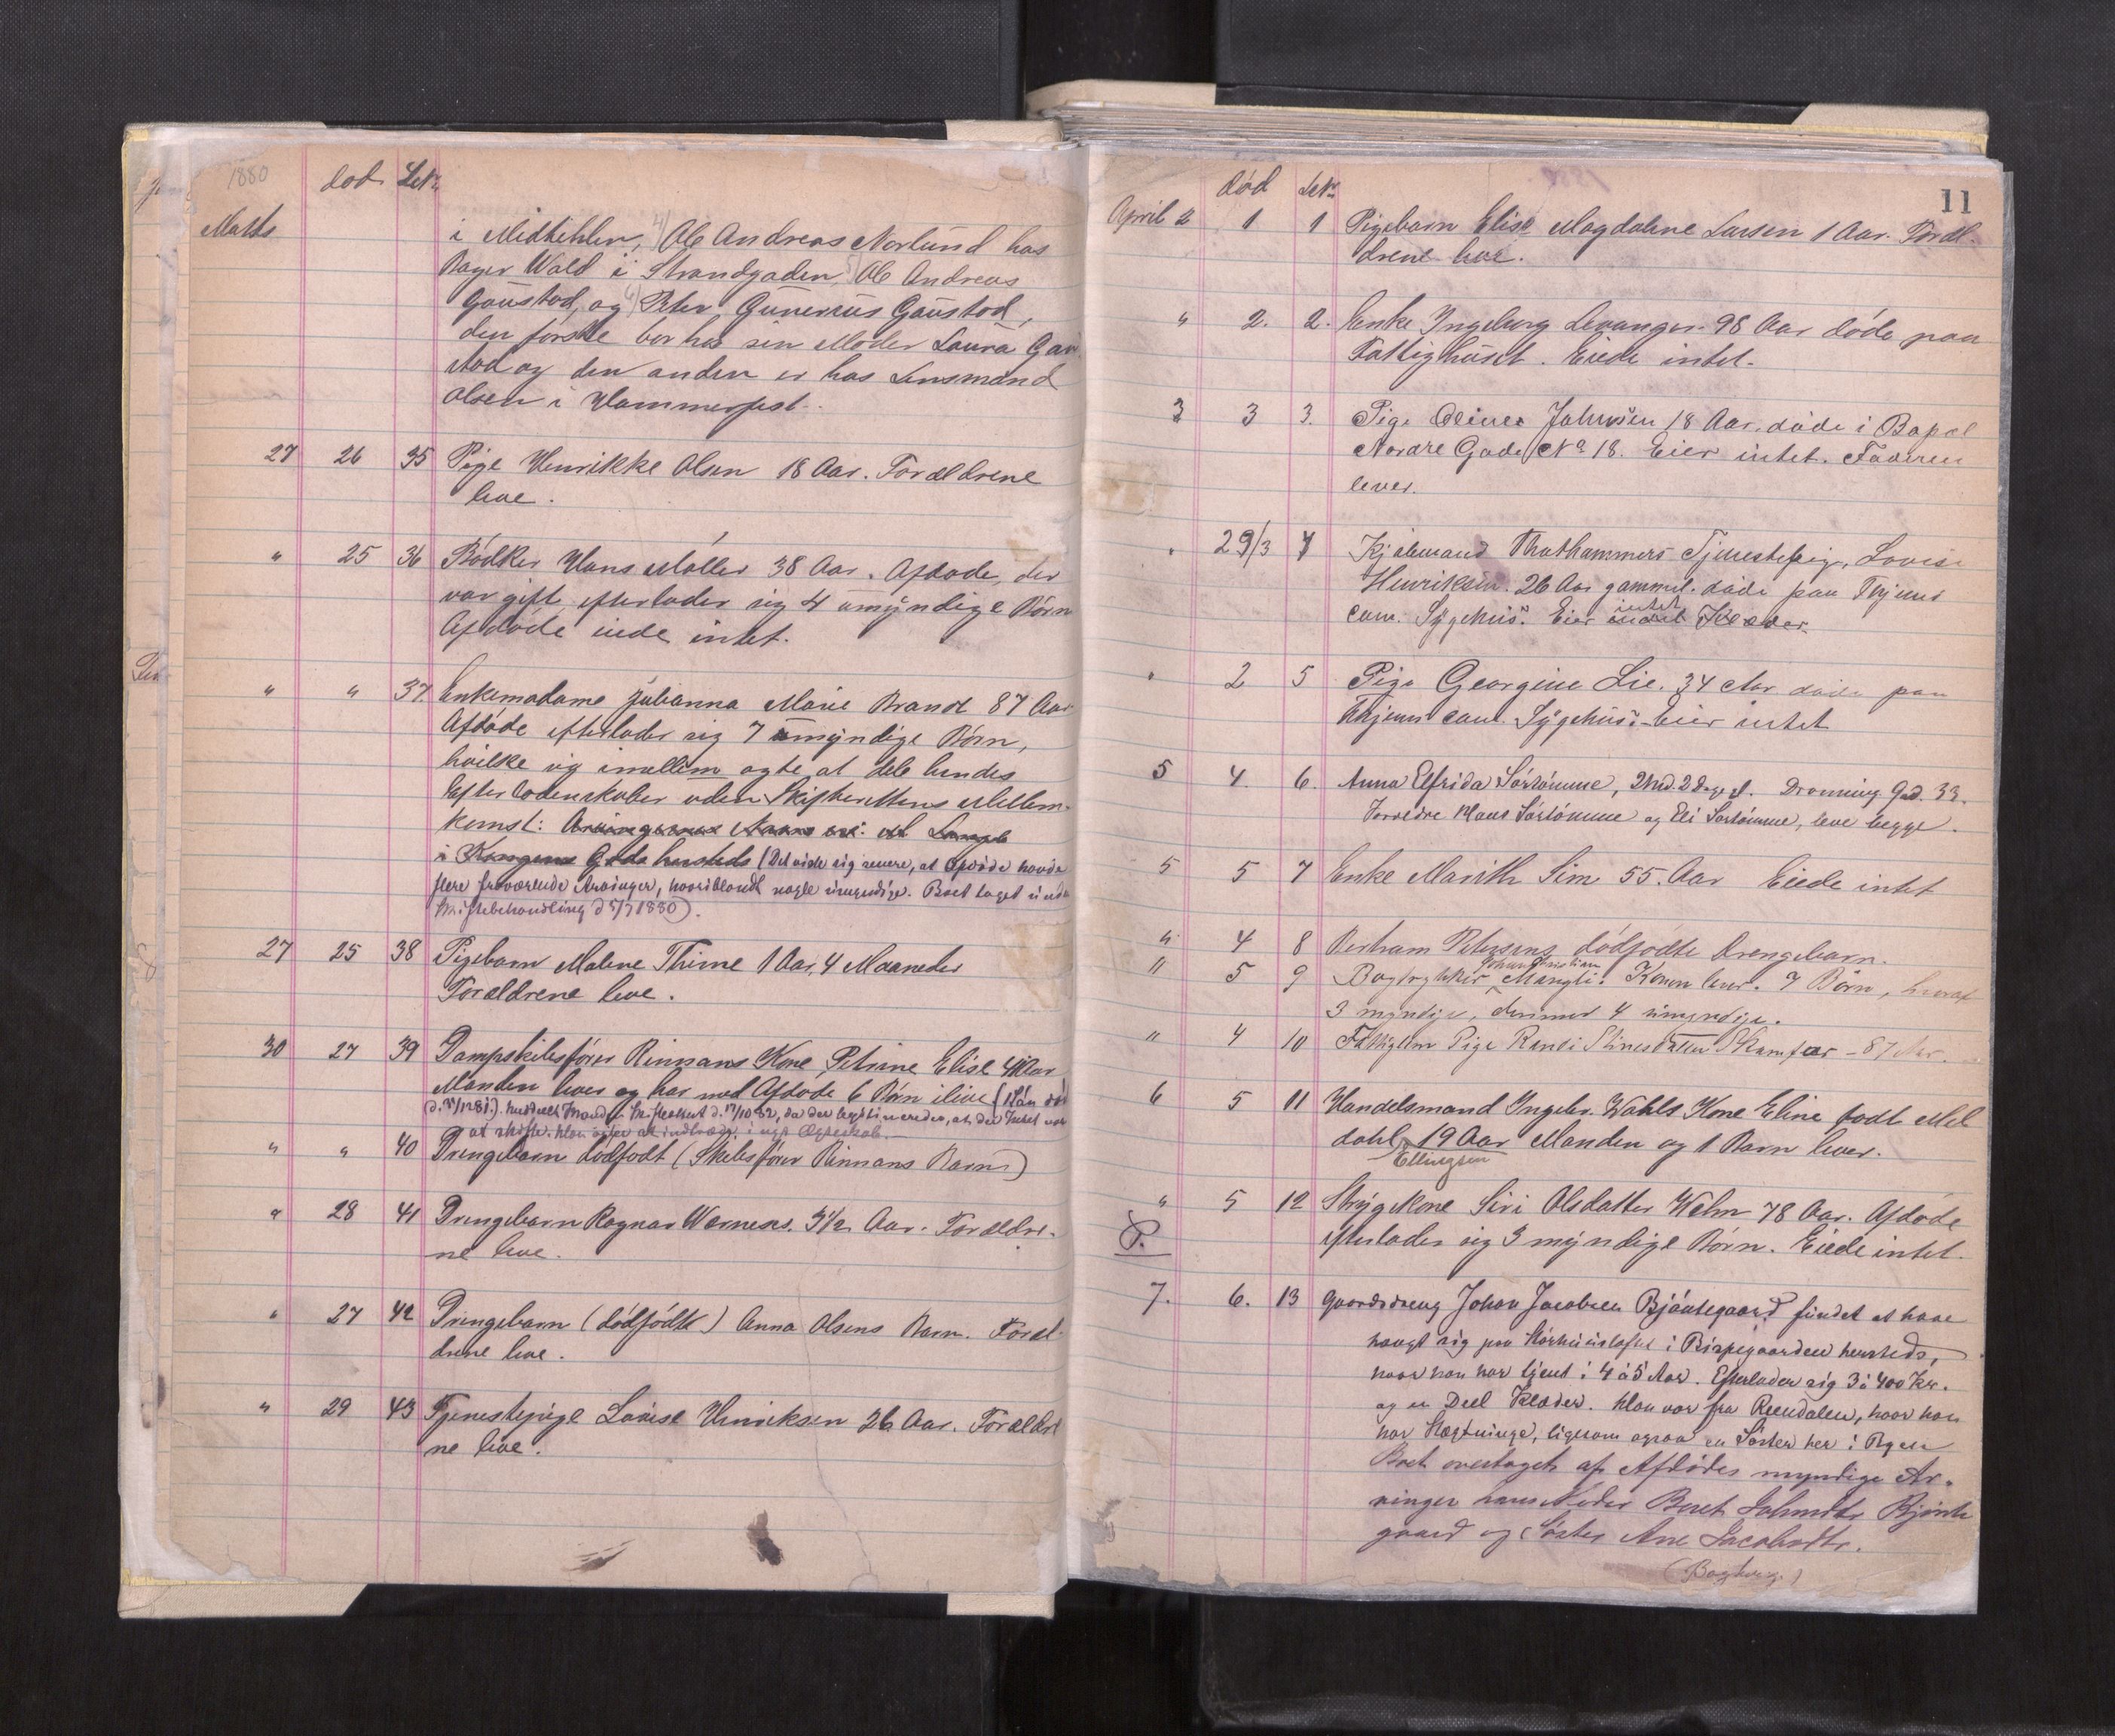 1880 død LNr.
Marts
i Midtihlen, 4) Ole Andreas Norlund hos
Bager Wold i Strandgaden, 5) Ole Andreas
Gaustad, og 6) Peter Gunerius Gaustad,
den første bor hos sin Moder Laura Gau
stad og den anden er hos Lensmand
Olsen i Hammerfest.
27 26 35 Pige Henrikke Olsen 18 Aar. Forældrene
leve.
" 25 36 Bødker Hans Møller 38 Aar. Afdøde, der
var gift, efterlader sig 4 umyndige Børn
Afdøde eiede intet.
" " 37. Enkemadame Julianna Marie Brandt 87 Aar
Afdøde efterlader sig 7 myndige Børn,
hvilke sig imellem agte at dele hendes
Efterladenskaber uden Skifterettens Mellem-
komst: Arvingernes Navne er:
i Kongens Gade hersteds (Det viste sig senere, at Afdøde havde
flere fraværende Arvinger, hvoriblandt nogle umyndige. Boet taget under
Skiftebehandling d 5/7 1880).
27 25 38 Pigebarn Malene Thime 1 Aar, 4 Maaneder
Forældrene leve.
30 27 39 Dampskibsfører Rinnans Kone, Petrine Elise 41 Aar
Manden lever og har med Afdøde 6 Børn ilive (Han død
at skifte. Han agter at indtræde i nyt Ægteskab.
" " 40 Drengebarn dødfødt (Skibsfører Rinnans Barn)
" 28 41 Drengebarn Ragnar Wernes. 3 1/2 Aar. Forældre-
ne leve.
" 27 42 Drengebarn (dødfødt) Anna Olsens Barn. Foræl-
drene leve.
" 29 43 Tjenestepige Lovise Henriksen 26 Aar. Forældre
ne leve.
11
død LNr.
April 2 1 1 Pigebarn Elise Magdalene Larsen 1 Aar. Foræl-
drene leve.
" 2. 2. Enke Ingeborg Levanger. 98 Aar døde paa
Fattighuset. Eiede intet.
3 3 3. Pige Oline Johnsen 18 Aar, døde i
Nordre Gade No 18. Eier intet. Faderen
lever.
" 29/3 4 Kjøbmand Tjenestepige, Lovise
Henriksen. 26 Aar gammel. døde paa Thjems
com. Sygehus. Eier intet Klæder.
" 2 5 Pige Georgine Lie. 34 Aar døde paa
Thjems com. Sygehus. Eier intet
5 4. 6. Anna Elfrida Sørtømme, 2 Md. 2 Dage gl. Dronning. Gd. 33.
Forældre Hans Sørtømme og Eli Sørtømme, leve begge.
5 5 7 Enke Marith Sim 55. Aar Eiede intet
" 4 8 Bertram Petersens dødfødte Drengebarn.
Johan Christian
" 5 9 Bogtrykker Mangli. Konen lever. 7 Børn, hvoraf
3 myndige, derimod 4 umyndige.
" 4 10 Fattiglem Pige Randi Stinesdatter Skamfær - 87 Aar.
6 5 11 Handelsmand Ingebr. Wahls Kone Eline født Mel
dahl 19 Aar Manden og 1 Barn lever.
Ellingsen
" 5 12 Strygekone Siri Olsdatter Wehn 78 Aar. Afdøde
P. efterlader sig 3 myndige Børn. Eiede intet.
7. 6. 13 Gaardsdreng Johan Jacobsen Bjørtegaard fundet at have
hængt sig paa i Bispegaarden hersteds,
hvor han har tjent i 4 à 5 Aar. Efterlader sig 3 à 400 Kr.
og en Deel Klæder. Han var fra Rendalen, hvor han
har Slægtninge, ligesom ogsaa en Søster her i Byen
Boet overtaget af Afdødes myndige Ar-
vinger hans Moder Beret Johnsdtr. Bjørte
gaard og Søster Ane Jacobsdtr.